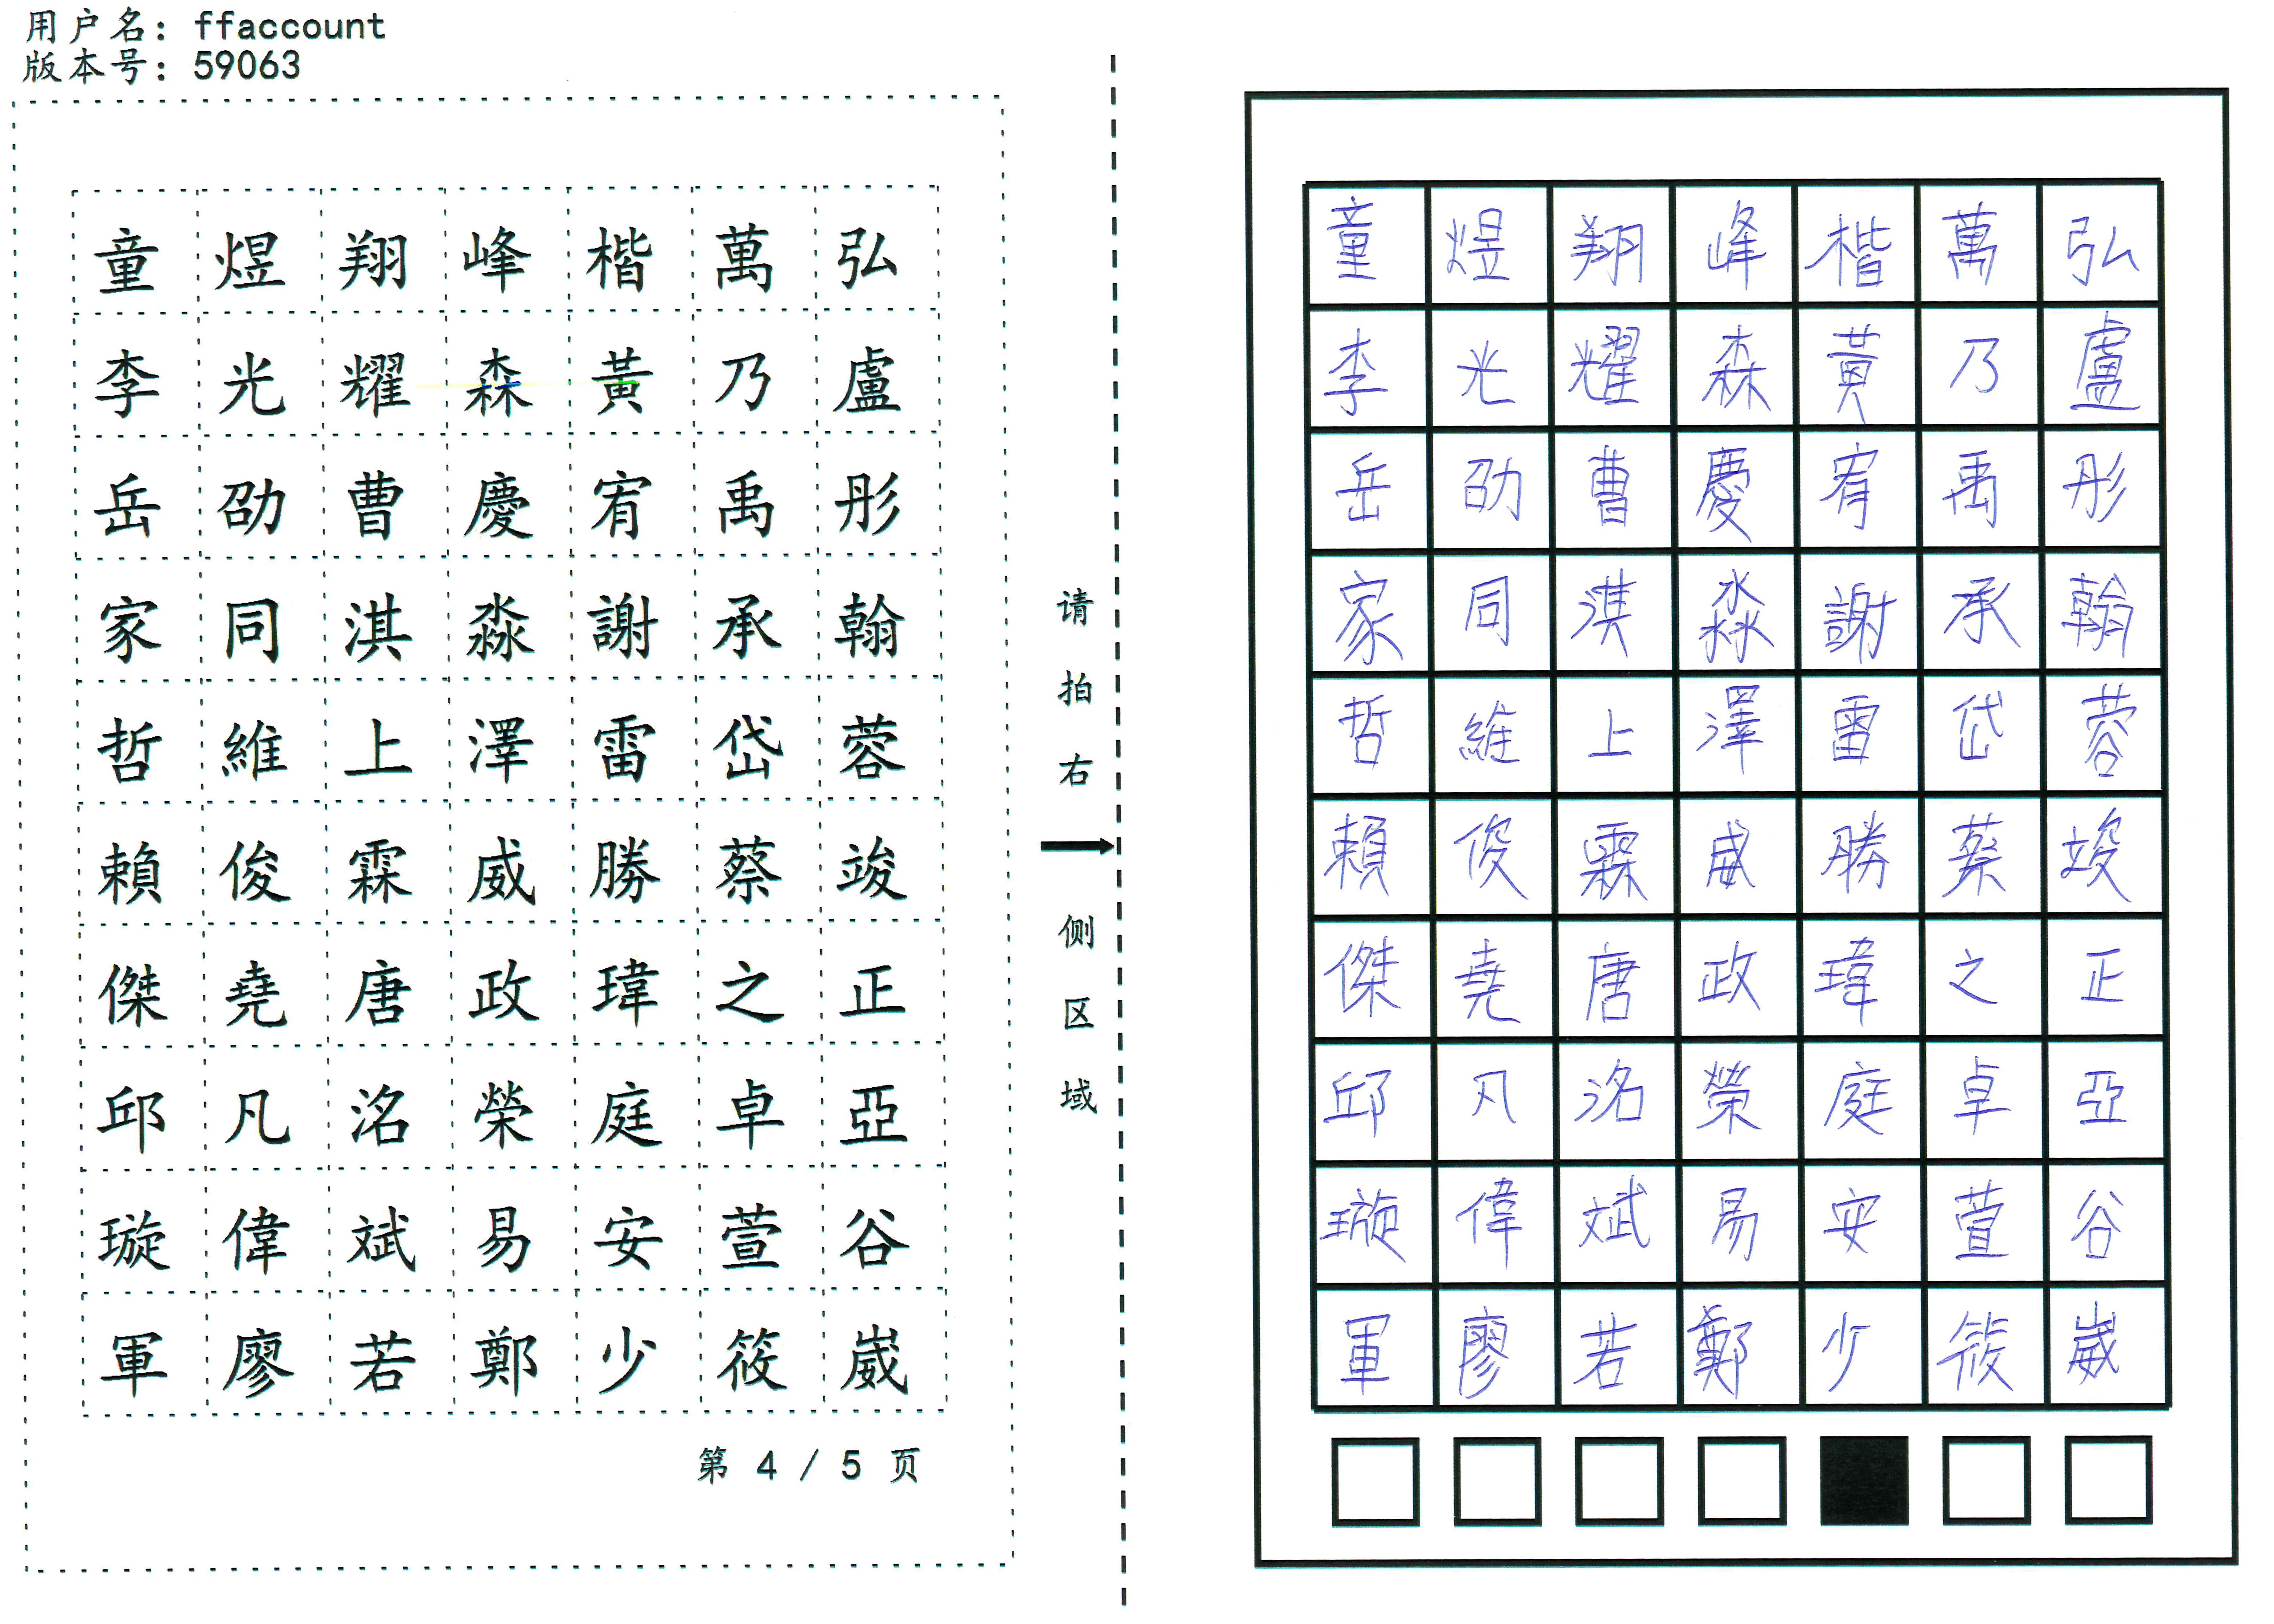 用户名: ffaccount
版本号: 59063
童 煜 翔 峰 楷 萬 弘
李 光 耀 森 黃 乃 盧
岳 劭 曹 慶 宥 禹 彤
家 同 淇 淼 謝 承 翰
哲 維 上 澤 雷 岱 蓉
賴 俊 霖 威 勝 蔡 竣
傑 堯 唐 政 瑋 之 正
邱 凡 洺 榮 庭 卓 亞
璇 偉 斌 易 安 萱 谷
軍 廖 若 鄭 少 筱 崴
第 4 / 5 页
请拍右→侧区域
童 煜 翔 峰 楷 萬 弘
李 光 耀 森 黃 乃 盧
岳 劭 曹 慶 宥 禹 彤
家 同 淇 淼 謝 承 翰
哲 維 上 澤 雷 岱 蓉
賴 俊 霖 威 勝 蔡 竣
傑 堯 唐 政 瑋 之 正
邱 凡 洺 榮 庭 卓 亞
璇 偉 斌 易 安 萱 谷
軍 廖 若 鄭 少 筱 崴